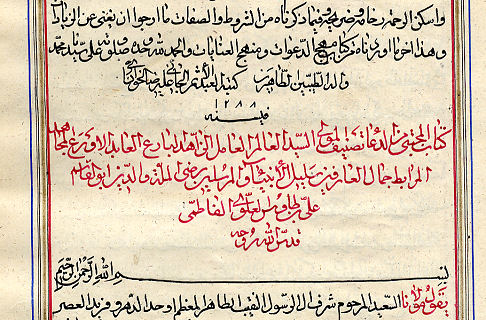 واسكن الرحمة رخا مر وضى محمد وفيما ذكرناه من الشروط والصفات ما ارجو ان يغنى عن الزيادات
وهذا اخر ما اوردناه فى كتاب مهج الدعوات ومنهج العنايات والحمد لله وحده وصلوته على سيدنا محمد
واله الطيبين الطاهرين كتبه العبد الاثم الحاجى على رضا الخونسارى
فى سنه
١٢٨٨
كتاب المجتنى من الدعا تصنيف المولى السيد العالم العامل الزاهد البارع العابد الاورع المجاهد
المرابط جمال العارفين سليل الانبياء والمرسلين رضى الملة والدين ابو القاسم
على بن طاوس العلوى الفاطمى
قدس الله روحه
بسم الله الرحمن الرحيم
يقول مولانا السعيد المرحوم شرف ال الرسول النقيب الطاهر المعظم اوحد الدهر وفريد العصر